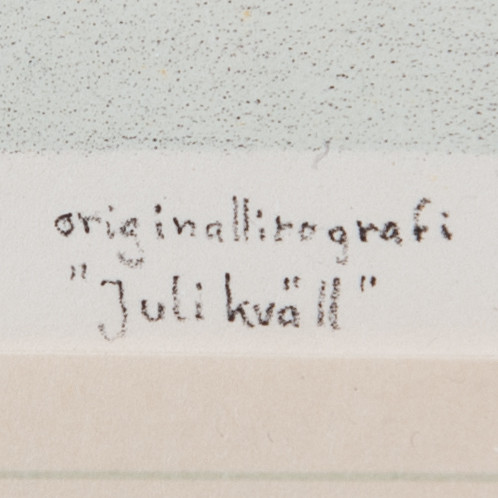 originallitografi
"Juli kväll"